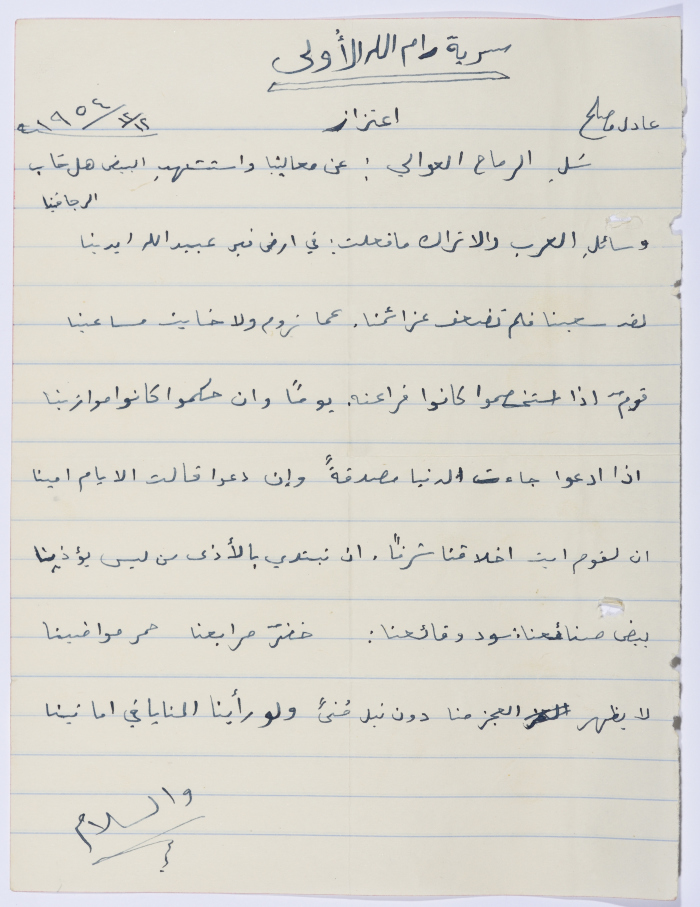 سرية رام الله الأولى
عادل مصلح اعتزاز ١٩٥٤/٢/١٢
سَلِ الرماح العوالي ؛ عن معالينا واستشهدِ البيض هل خاب
الرجا فينا
وسائلِ العرب والاتراك ما فعلت: في ارض قبر عبيد الله ايدينا
لقد سعينا فلم تضعف عزائمنا. عما نروم ولا خابت مساعينا
قومٌ اذا استخصموا كانوا فراعنه. يومًا وان حكموا كانوا موازينا
اذا ادعوا جاءت الدنيا مصدقةً وإن دعوا قالت الايام امينا
ان لقوم ابت اخلاقنا شرفًا. ان نبتدي بالأذى من ليس يؤذينا
بيض صنائعنا: سود وقائعنا: خضرٌ مرابعنا حمر مواضينا
لا يظهر العجز منا دون نيل مُنىً ولو رأينا المنايا في امانينا
والسلام